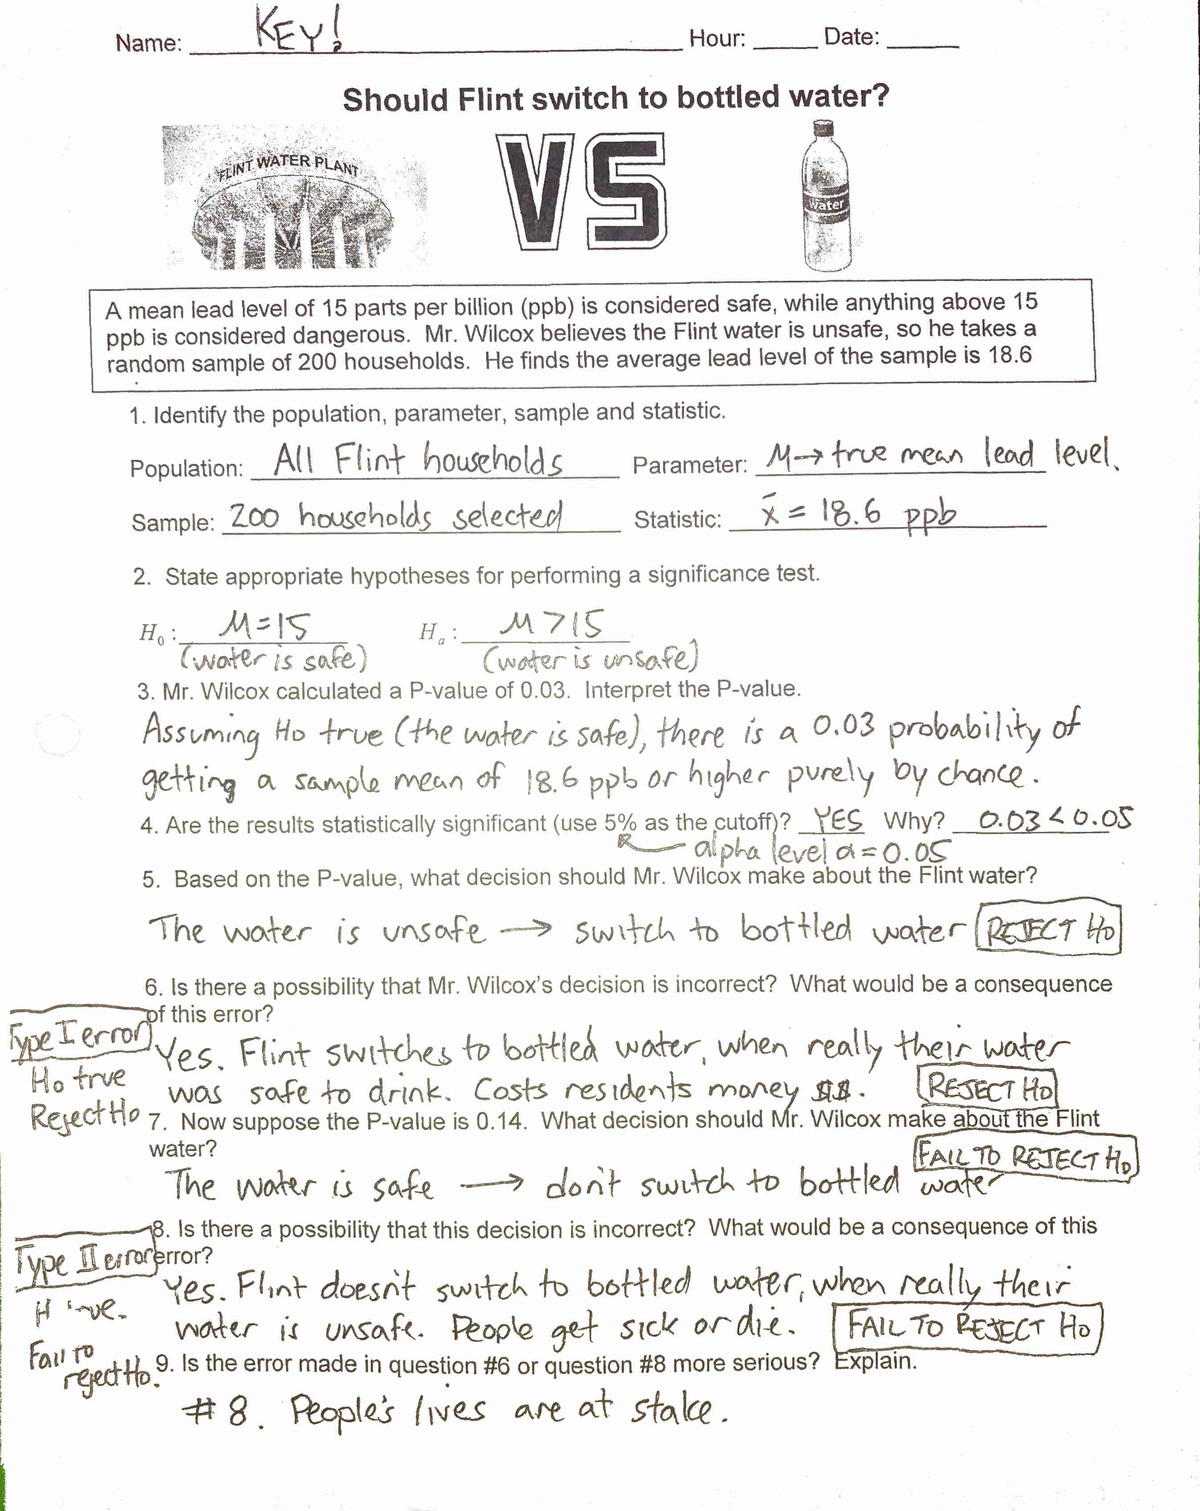 Name: KEY! Hour: Date:
Should Flint switch to bottled water?
FLINT WATER PLANT
VS
Water
A mean lead level of 15 parts per billion (ppb) is considered safe, while anything above 15
ppb is considered dangerous. Mr. Wilcox believes the Flint water is unsafe, so he takes a
random sample of 200 households. He finds the average lead level of the sample is 18.6
1. Identify the population, parameter, sample and statistic.
Population: All Flint households Parameter: M→ true mean lead level.
Sample: 200 households selected Statistic: x̄ = 18.6 ppb
2. State appropriate hypotheses for performing a significance test.
H₀: M=15 Hₐ: M>15
(water is safe) (water is unsafe)
3. Mr. Wilcox calculated a P-value of 0.03. Interpret the P-value.
Assuming Ho true (the water is safe), there is a 0.03 probability of
getting a sample mean of 18.6 ppb or higher purely by chance.
4. Are the results statistically significant (use 5% as the cutoff)? YES Why? 0.03 < 0.05
alpha level α = 0.05
5. Based on the P-value, what decision should Mr. Wilcox make about the Flint water?
The water is unsafe → switch to bottled water REJECT Ho
6. Is there a possibility that Mr. Wilcox's decision is incorrect? What would be a consequence
of this error?
Type I error
Yes. Flint switches to bottled water, when really their water
Ho true
was safe to drink. Costs residents money $$. REJECT Ho
Reject Ho
7. Now suppose the P-value is 0.14. What decision should Mr. Wilcox make about the Flint
water?
FAIL TO REJECT Ho
The water is safe → don't switch to bottled water
8. Is there a possibility that this decision is incorrect? What would be a consequence of this
error?
Type II error
Yes. Flint doesn't switch to bottled water, when really their
water is unsafe. People get sick or die. FAIL TO REJECT Ho
Fail to
reject Ho.
9. Is the error made in question #6 or question #8 more serious? Explain.
# 8. People's lives are at stake.